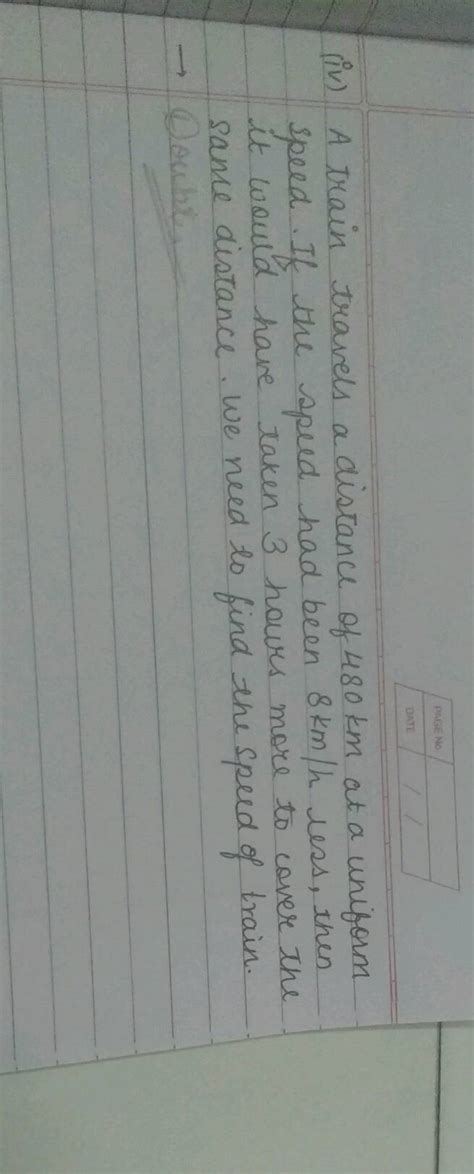 PAGE No.
DATE / /
(iv) A train travels a distance of 480 km at a uniform
speed. If the speed had been 8 km/h less, then
it would have taken 3 hours more to cover the
same distance. We need to find the speed of train.
→ Doubt